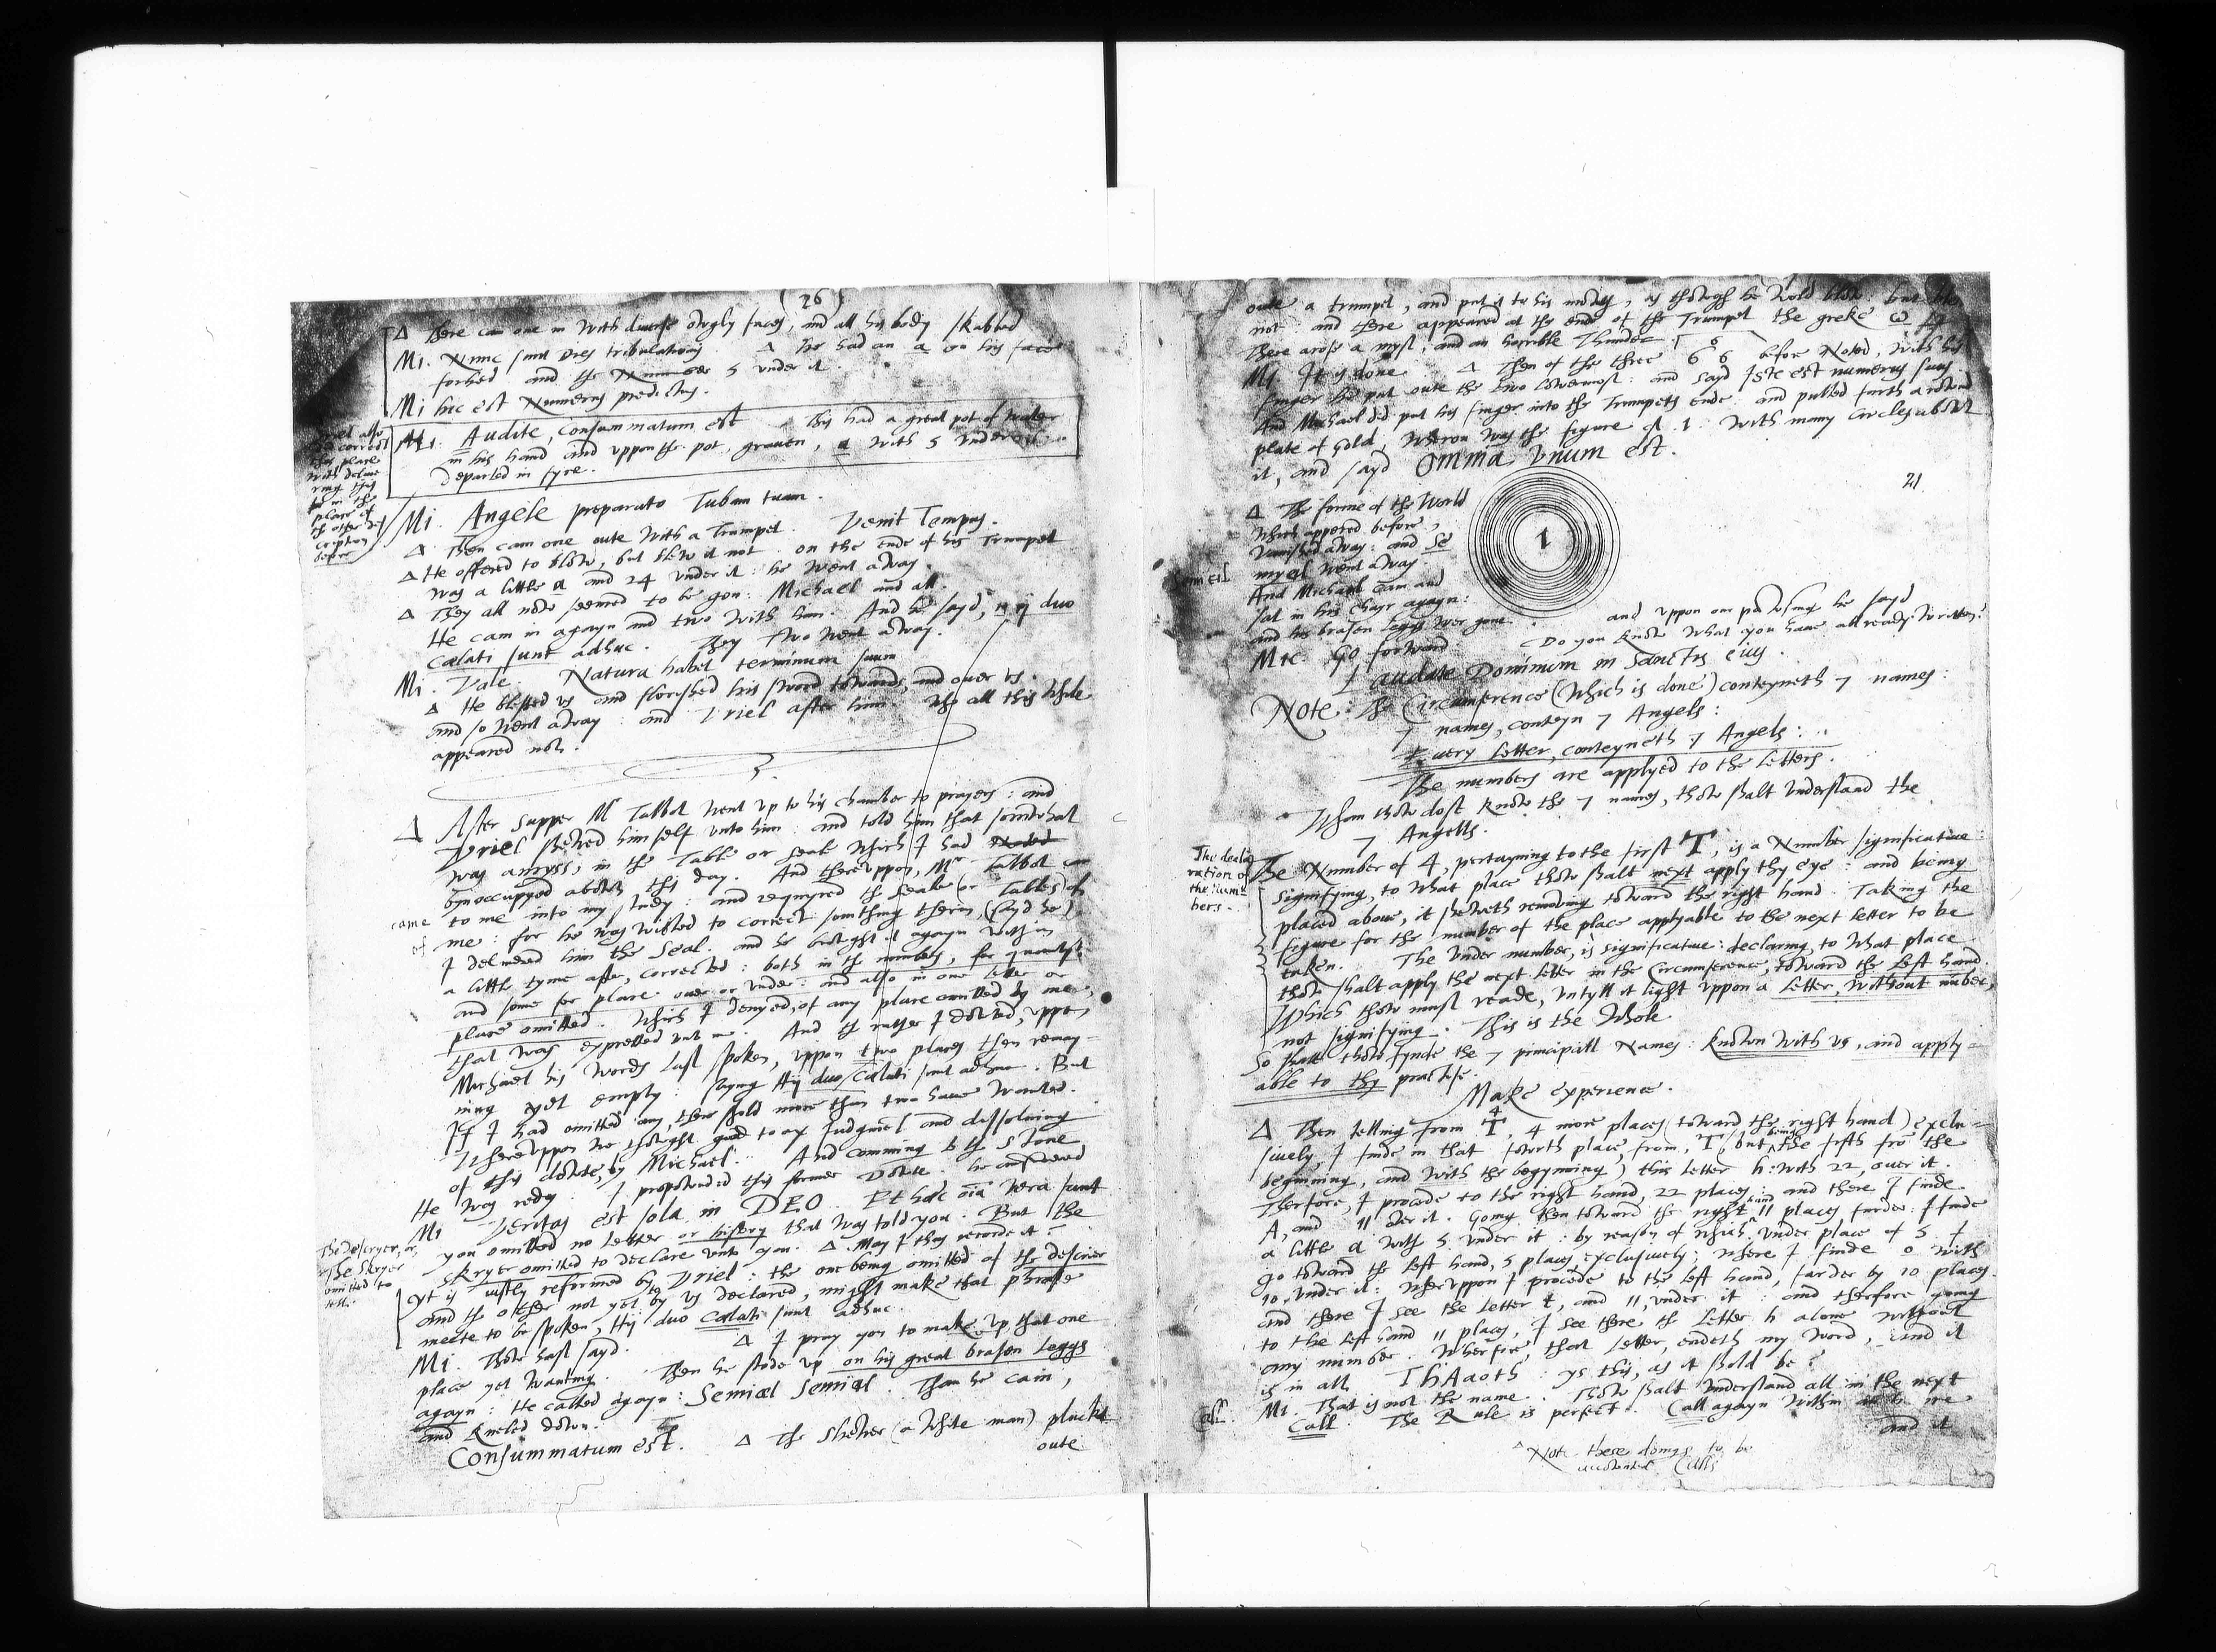 ( 26 )
Δ There cam one in with diverse owgly faces, and all his body skabbed
Mi. Nunc sunt Dies tribulationis Δ he had an a on his face
forhed and the Number 5 under it.
Mi hic est Numerus predictus.
Mi. Audite, consummatum est Δ This had a great pot of water
in his hand and uppon the pot, graven, a with 5 under it.
Departed in fyre.
Mi. Angele preparato Tubam tuam.
Δ Then cam one oute with a Trumpet. Venit Tempus.
Δ He offred to blow, but blew it not. on the ende of his Trumpet
was a little a and 24 under it: he went away.
Δ They all now seemed to be gon: Michael and all.
He cam in agayn and two with him. And he sayd, Hij duo
Cælati sunt adhuc. They two went away.
Mi. Vale. Natura habet terminum suum
Δ He blessed us and florished his sword towards, and over us.
and so went away: and Vriel after him. Who all this while
appeared not.
Δ After supper Mr Talbot went up to his chamber to prayers: and
Vriel shewed himself unto him: and told him that somewhat
was amyss, in the Table or seale which I had
byn occupyed abowte this day. And theruppon, Mr Talbot cam
came to me into my study: and requyred the Seale (or Tables) of
of me: for he was wished to correct something therin (sayd he)
I delivered him the Seal. and he browght it agayn within
a little tyme after, corrected: both in the numbers, for quantyte
and some for place over or under: and also in one letter or
place omitted. Which I denyed, of any place omitted by me,
that was expressed unto me. And the rather I dowted, uppon
Michael his words last spoken, uppon two places then remay-
ning yet empty: saying Hij duo Cælati sunt adhuc. But
If I had omitted any, there shold more than two have wanted.
Whereuppon we thowght good to ax Judgment and dissolving
of this dowte, by Michael. And comming to the Stone
He was redy. I propownded this former Dowte. he answered
Mi Veritas est sola in DEO. Et hæc oīa vera sunt
you omitted no letter or history that was told you. But the
skryer omitted to declare unto you. Δ. May I thus recorde it?
The Descryer, or,
the Skryer
omitted to
tell.
yt is justly reformed by Vriel: the one being omitted of the descrier
and the other not yet by us declared, might make that phrase
meete to be spoken, Hij duo Cælati sunt adhuc.
Mi. Thow hast sayd. Δ I pray you to make up that one
place yet wanting. Then he stode up on his great brasen leggs
agayn: He called agayn: Semiel Semiel. Then he cam,
and kneled down.
Consummatum est. Δ The Shewer (a white man) pluckt
oute
oute a trumpet, and put it to his mowth, as though he wold blow: but blew
not: and there appeared at the ende of the Trumpet the greke ω
There arose a myst, and an horrible Thunder
Mi. It is done. Δ Then of the three 6 6 6 before Noted, with his
finger he put oute the two lowermost: and sayd Iste est numerus suus.
And Michael did put his finger into the Trumpets ende. and pulled furth a rownd
plate of Gold, wheron was the figure of .1. with many circles abowt
it, and sayd Omnia unum est.
21.
Δ The forme of the World
which appeared before,
vanished away: and Se
miel went away
And Michael cam and
sat in his chayr agayn:
and his brasen leggs wer gone. and uppon our pawsing he sayd
1
Mic. Go forward Do you know what you have allready written?
Laudate Dominum in Sanctis eius.
Note: The Circumference (which is done) conteyneth 7 names:
7 names, conteyn 7 Angels:
Every letter, conteyneth 7 Angels:
The numbers are applyed to the letters.
Whan thow dost know the 7 names, thow shalt understand the
7 Angells.
The decla
ration of
the Num
bers.
The Number of 4, pertayning to the first T, is a Number significative:
signifying, to what place thow shalt next apply thy eye: and being
placed above, it sheweth removing toward the right hand. Taking the
figure for the number of the place applyable to the next letter to be
taken. The under number, is significative: declaring, to what place
thow shalt apply the next letter in the Circumference, toward the left hand.
Which thow must reade, untyll it light uppon a letter, without number,
not signifying. This is the Whole.
So shalt thow fynde the 7 principall Names: known with us, and apply=
able to thy practise.
Make experience.
Δ Then telling from T, 4 more places (toward the right hand) exclu=
4
sively, I finde in that fowrth place, from, T, (but being the fifth fro the
beginning, and with the begynning) this letter h: with 22, over it.
Therfore, I procede to the right hand, 22 places: and there I finde
A, and 11 over it. Going then toward the right hand 11 places furder: I finde
a little a with 5. under it: by reason of which under place of 5. I
go toward the left hand, 5 places, exclusively: where I finde o with
10. under it: wheruppon I procede to the left hand, farder by 10 places.
and there I see the letter t, and 11, under it: and therfore going
to the left hand 11 places, I see there the letter h alone without
any number. Wherfore, that letter, endeth my word, and it
is in all ThAaoth: ys this, as it shold be?
Mi. That is not the name. Thow shalt understand all in the next
Call. The Rule is perfect. Call agayn within an howre
and it
Note these doings to be
accounted Calls